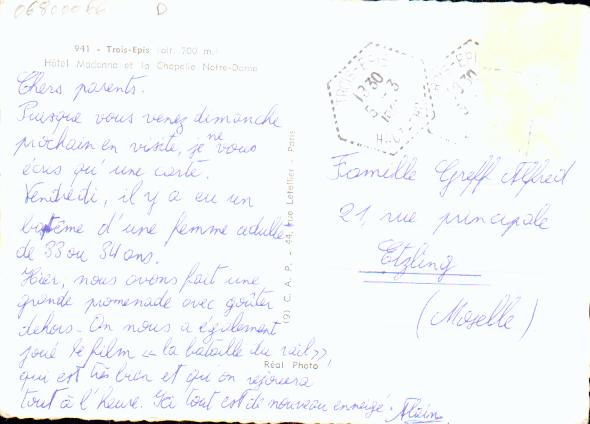 06800066 D
941 - Trois-Epis (alt. 700 m.)
Hôtel Madonna et la Chapelle Notre-Dame
Chers parents.
Puisque vous venez dimanche
prochain en visite, je ne vous
écris qu'une carte.
Vendredi, il y a eu un
baptême d'une femme adulte
de 33 ou 34 ans.
Hier, nous avons fait une
grande promenade avec goûter
dehors. On nous a également
joué le film « la bataille du rail »,
qui est très bien et qu'on rejouera
tout à l'heure. Ici tout est de nouveau enneigé. Alain.
(9) C. A. P. - 44, rue Letellier - Paris
Réal Photo
TROIS-EPIS
13 30
Famille Greff Alfred
21, rue principale
Etzling
(Moselle)